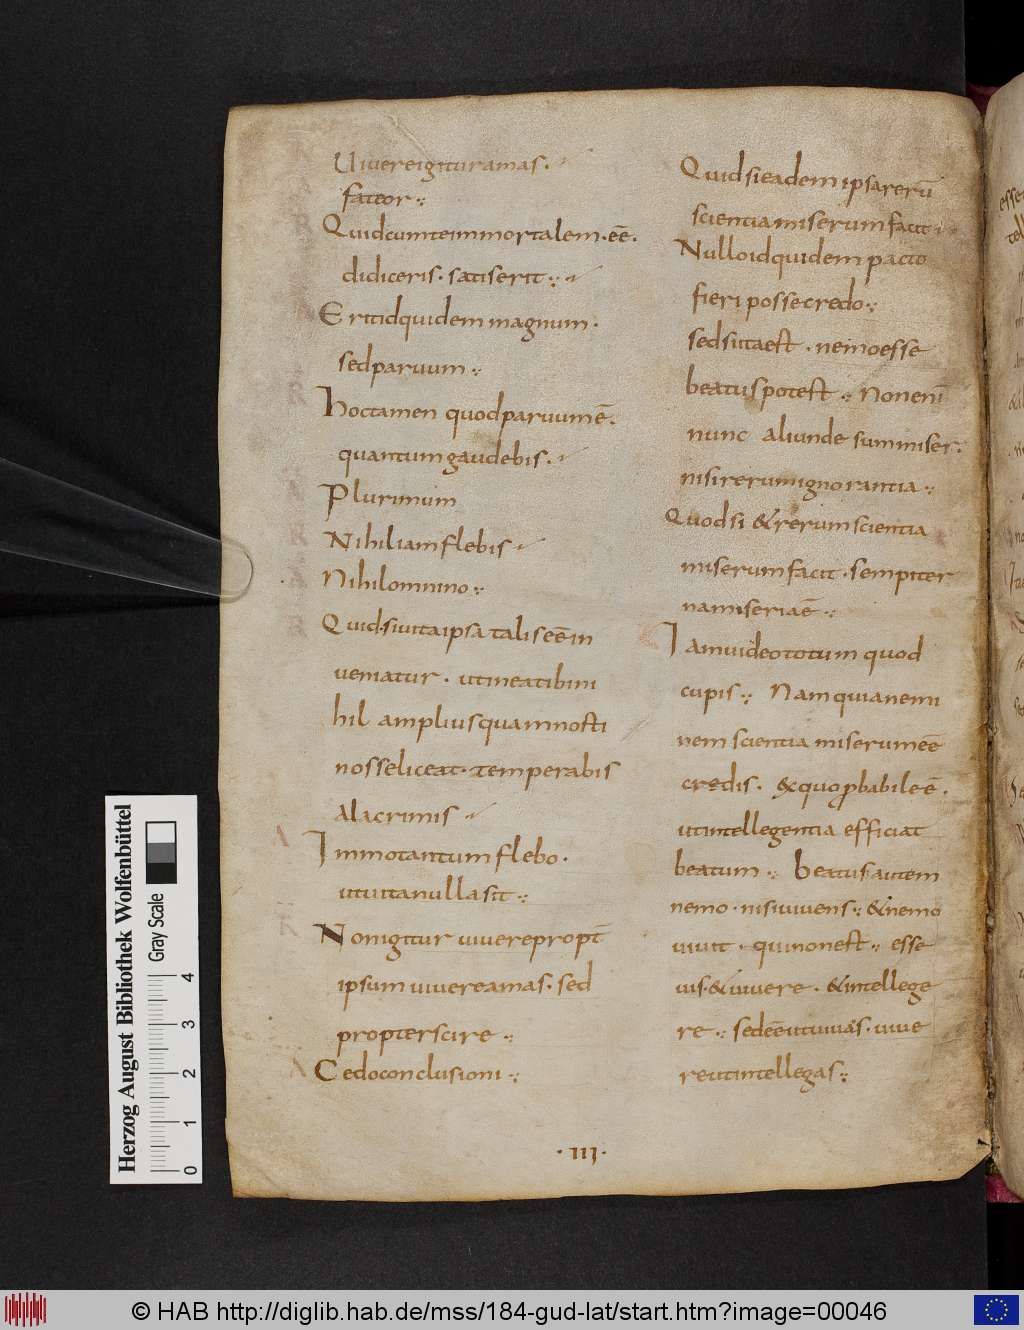 Uiuereigituramas.
fateor
Quidcumteinmortalem.eē.
didiceris. satiserit
Eritidquidemmagnum.
sedparuum
hoctamen quodparuumē.
quantumgaudebis.
Plurimum
Nihiliamflebis
Nihilomnino
Quid.siuitaipsa taliseēin
ueniatur. utineatibini
hil ampliusquamnosti
nosseliceat. temperabis
alacrimis
Immotantumflebo.
utuitanullasit
Nonigitur uiuerepropt̄
ipsumuiuereamas. sed
propterscire
Cedoconclusioni
Quidsieademipsarerū
scientiamiserumfacit
Nulloidquidempacto
fieripossecredo
sedsiitaest. nemoesse
beatuspotest Nonenī
nunc aliundesummiser.
nisirerumignorantia
Quodsi &rerumscientia
miserumfacit. sempiter
namiseriaē
Iamuideototum quod
cupis Namquianemi
nemscientiamiserumeē
credis. &quoꝓbabileē.
utintellegentia efficiat
beatum beatusautem
nemo. nisiuiuens &nemo
uiuit. quinonest esse
uis.&uiuere. &intellege
re sedeēutuiuas. uiue
reutintellegas
.III.
Herzog August Bibliothek Wolfenbüttel
Gray Scale
0 1 2 3 4
© HAB http://diglib.hab.de/mss/184-gud-lat/start.htm?image=00046